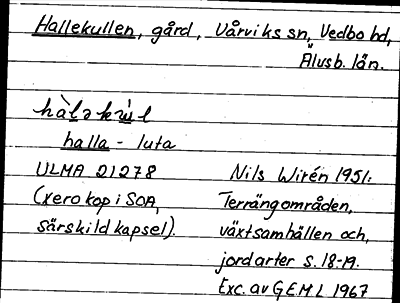 Hallekullen, gård, Vårviks sn, Vedbo hd,
Älvsb. län.
hàləku̇l
halla - luta
ULMA 21278
(xerokop i SOA,
särskild kapsel).
Nils Wirén 1951:
Terrängområden,
växtsamhällen och,
jordarter s. 18-19.
Exc. av G.E.M.L 1967